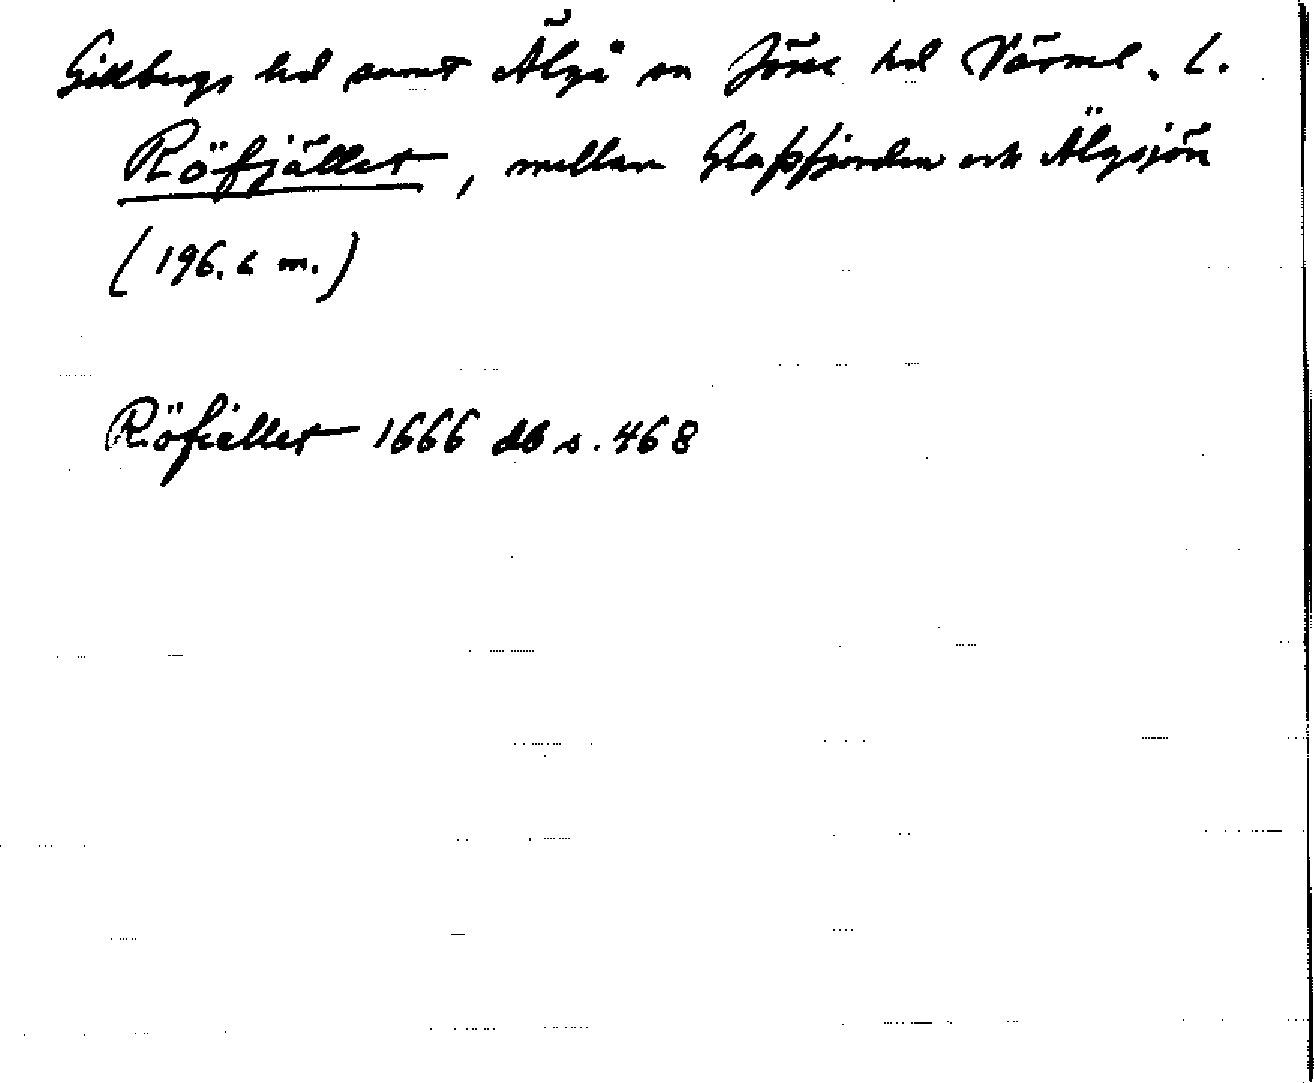 Gillbergs hd samt Älgå sn Jösse hd Värml. L.
Röfjället, mellan Glafsfjorden och Älgsjön
(196.6 m.)
Röfiellet 1666 db s. 468